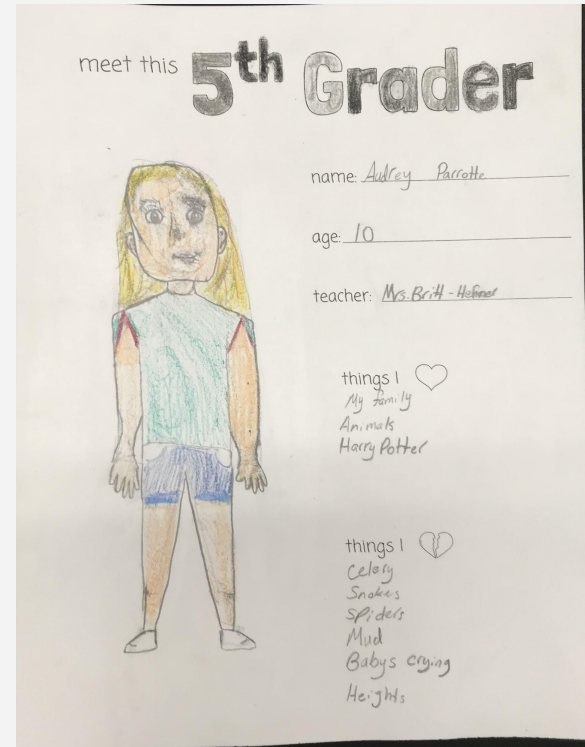 meet this 5th Grader
name: Audrey Parrotte
age: 10
teacher: Mrs. Britt -
things I
My family
Animals
Harry Potter
things I
Celery
Snakes
Spiders
Mud
Babys crying
Heights